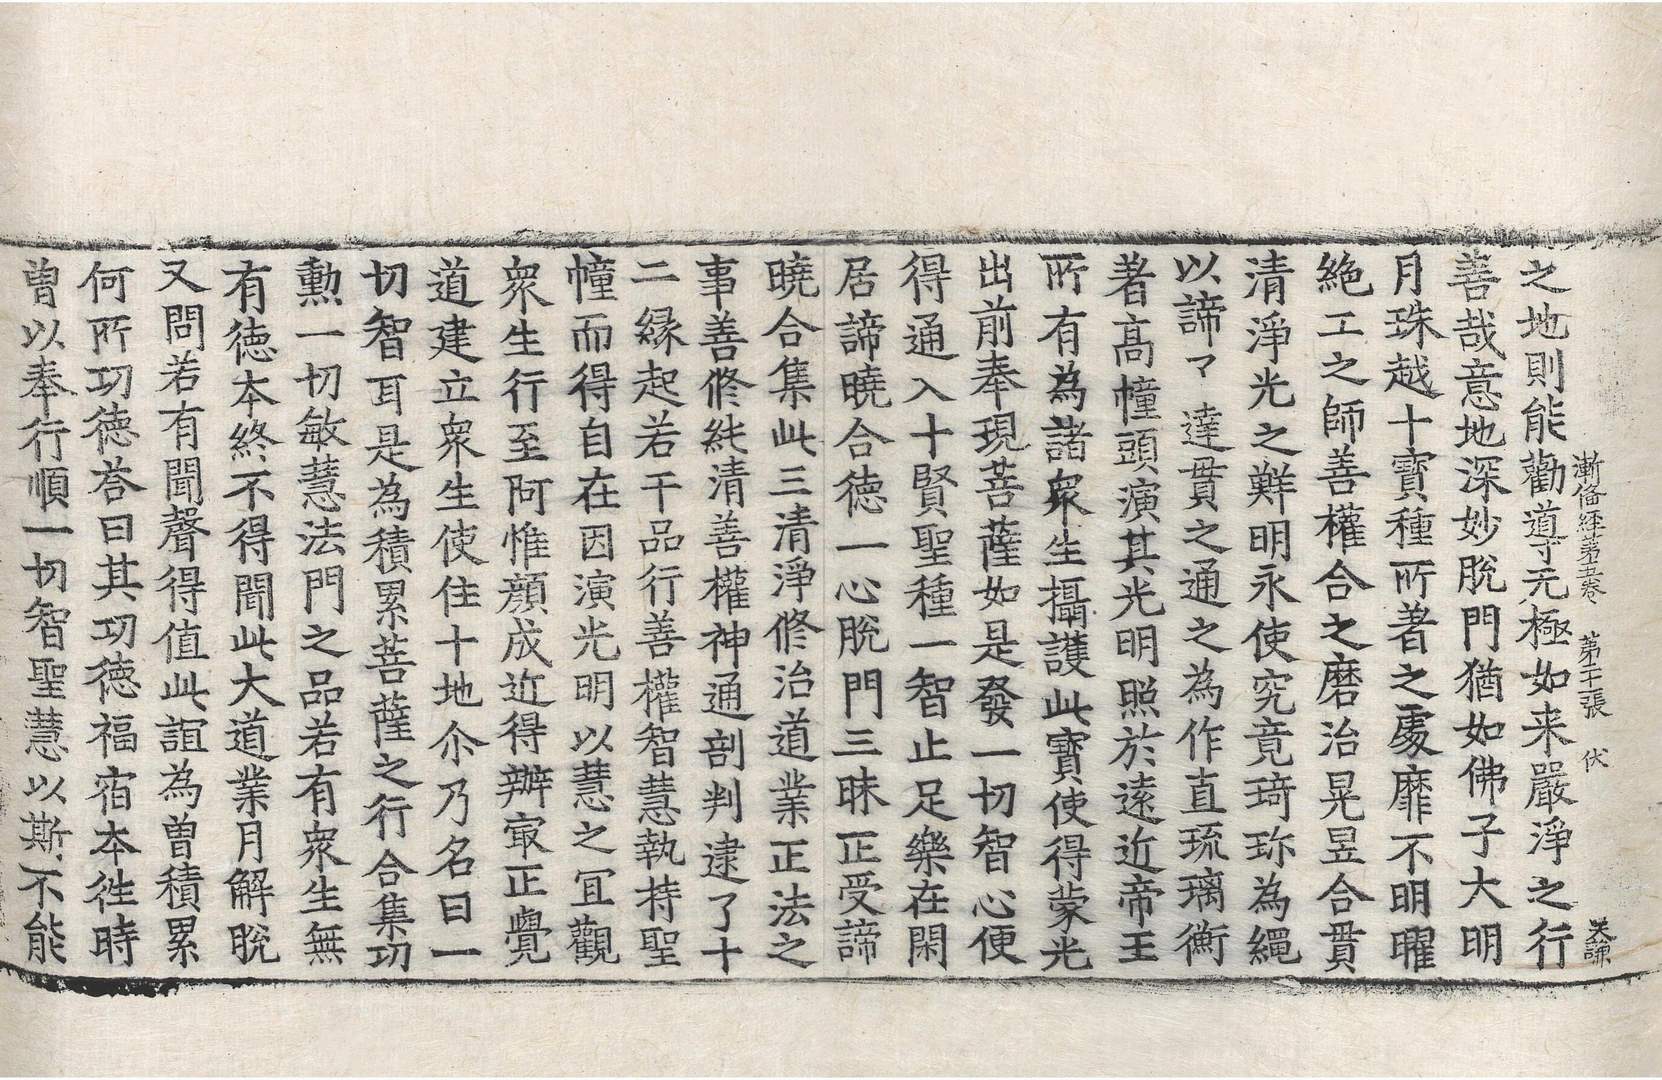 漸備經第五卷 第二十張 伏
之地則能勸導了元極如来嚴淨之行
善哉意地深妙脫門猶如佛子大明
月珠越十寶種所著之處靡不明曜
絕工之師善權合之磨治晃昱合貫
清淨光之難明永使究竟琦珎為繩
以諦了達貫之通之為作直琉璃衡
著高幢頭演其光明照於遠近帝王
所有為諸衆生攝護此寶使得蒙光
出前奉現菩薩如是發一切智心便
得通入十賢聖種一智止足樂在閑
居諦曉合德一心脫門三昧正受諦
曉合集此三清淨修治道業正法之
事善修純清善權神通剖判逮了十
二緣起若干品行善權智慧執持聖
幢而得自在因演光明以慧之冝觀
衆生行至阿惟顔成近得辦㝡正覺
道建立衆生使住十地尒乃名曰一
切智耳是為積累菩薩之行合集功
勲一切敏慧法門之品若有衆生無
有德本終不得聞此大道業月解脫
又問若有聞聲得值此誼為曽積累
何所功德荅曰其功德福宿本徃時
曽以奉行順一切智聖慧以斯不能